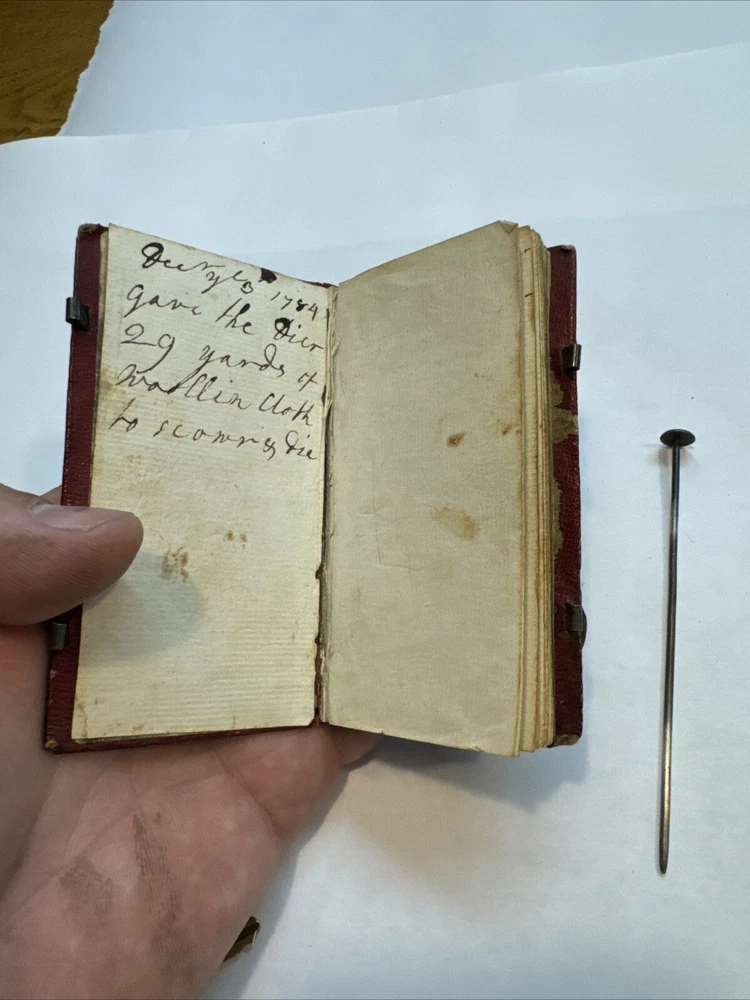 Decr ye 3 1784
gave the Dier
29 yards of
woollin Cloth
to scowr & Die